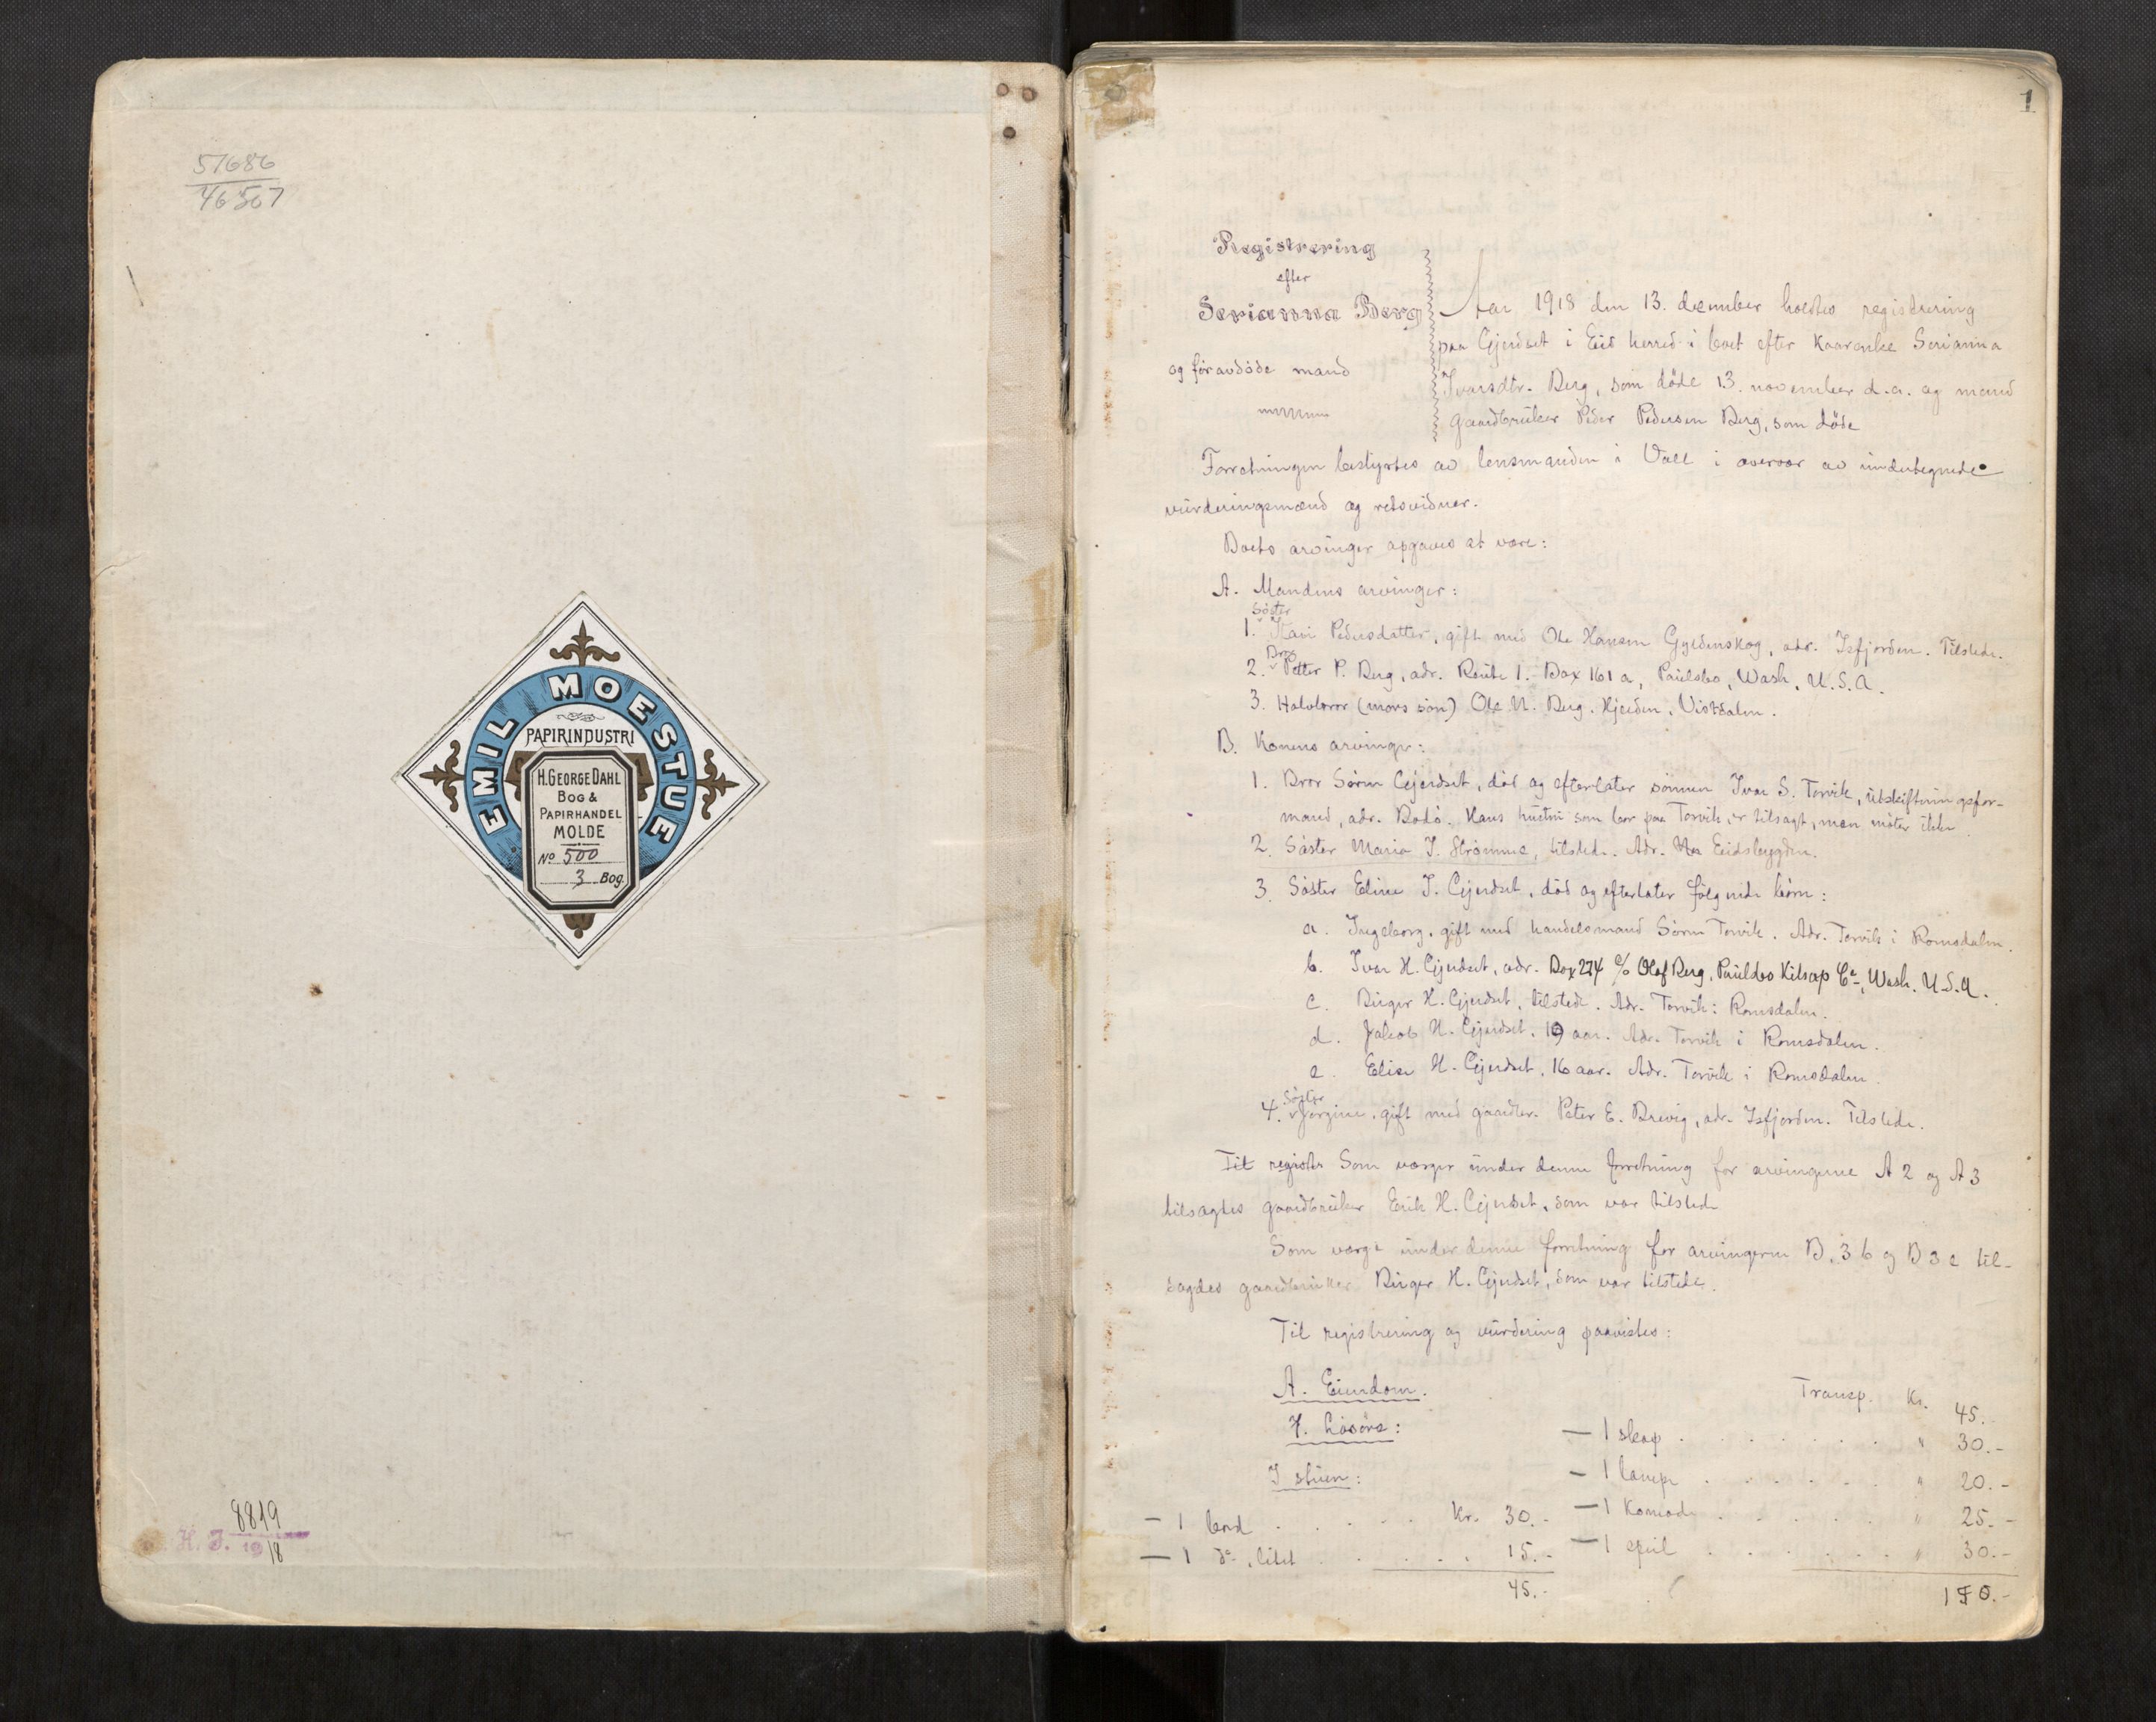 57686
46507
EMIL MOESTUE
PAPIRINDUSTRI
H. GEORGE DAHL
BOG &
PAPIRHANDEL
MOLDE
No 500
3 Bog.
8819
H. J. 19 18
1
Registrering
efter
Serianna Berg
og føravdøde mand
Aar 1918 den 13. desember holdtes registrering
paa Gjerdset i Eid herred i boet efter kaarenke Serianna
Ivarsdtr. Berg, som døde 13. november d.a. og mand
gaardbruker Peder Pedersen Berg, som døde
Forretningen bestyrtes av lensmanden i Voll i overvær av undertegnede
vurderingsmænd og retsvidner.
Boets arvinger opgaves at være:
A. Mandens arvinger:
Søster
1. Kari Pedersdatter, gift med Ole Hansen Gyldenskog, adr. Isfjorden. Tilstede.
Bror
2. Petter P. Berg, adr. Route 1. Box 161 a, Paulsbo, Wash, U.S.A.
3. Halvbror (mors søn) Ole N. Berg. Hjerden, Vistdalen.
B. Konens arvinger:
1. Bror Søren Gjerdset, død og efterlater sønnen Ivar S. Torvik, utskiftningsfor-
mand, adr. Bodø. Hans hustru som bor paa Torvik, er tilsagt, men møter ikke.
2. Søster Maria I. Strømme, tilstede. Adr. Eidsbygden.
3. Søster Eline I. Gjerdset, død og efterlater følgende børn:
a. Ingeborg, gift med handelsmand Søren Torvik. Adr. Torvik i Romsdalen.
b. Ivar H. Gjerdset, adr. Box 274 c/o Olof Berg, Paulsbo Kitsap Co, Wash. U.S.A.
c. Birger H. Gjerdset, tilstede. Adr. Torvik i Romsdalen.
d. Jakob H. Gjerdset, 19 aar. Adr. Torvik i Romsdalen.
e. Elise H. Gjerdset, 16 aar. Adr. Torvik i Romsdalen.
Søster
4. Jørgine, gift med gaardbr. Peter E. Brevig, adr. Isfjorden. Tilstede.
Til registr Som værge under denne forretning for arvingerne A 2 og A 3
tilsagdes gaardbruker Erik H. Gjerdset, som var tilstede
Som værge under denne forretning for arvingerne B. 3 b og B 3 e til-
sagdes gaardbruker Birger H. Gjerdset, som var tilstede.
Til registrering og vurdering paavistes:
A. Eiendom.
Løsøre:
I stuen:
— 1 bord . . . . . Kr. 30.-
— 1 do., litet . . . . . 15.-
45.-
Transp. Kr. 45.
— 1 skap . . . . . . . " 30.-
— 1 lampe . . . . . . " 20.-
— 1 komode . . . . . . " 25.-
— 1 speil . . . . . . " 30.-
150.-